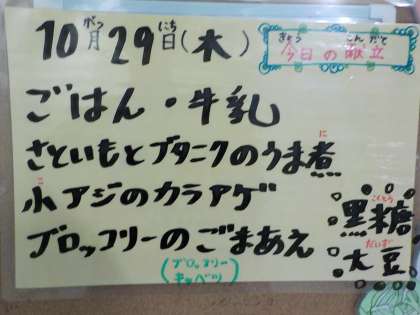 10月29日(木)
がつ にち
きょう こんだて
今日の献立
ごはん・牛乳
さといもとブタニクのうま煮
に
小アジのカラアゲ
こ
ブロッコリーのごまあえ
(ブロッコリー
キャベツ)
こくとう
黒糖
だいず
大豆